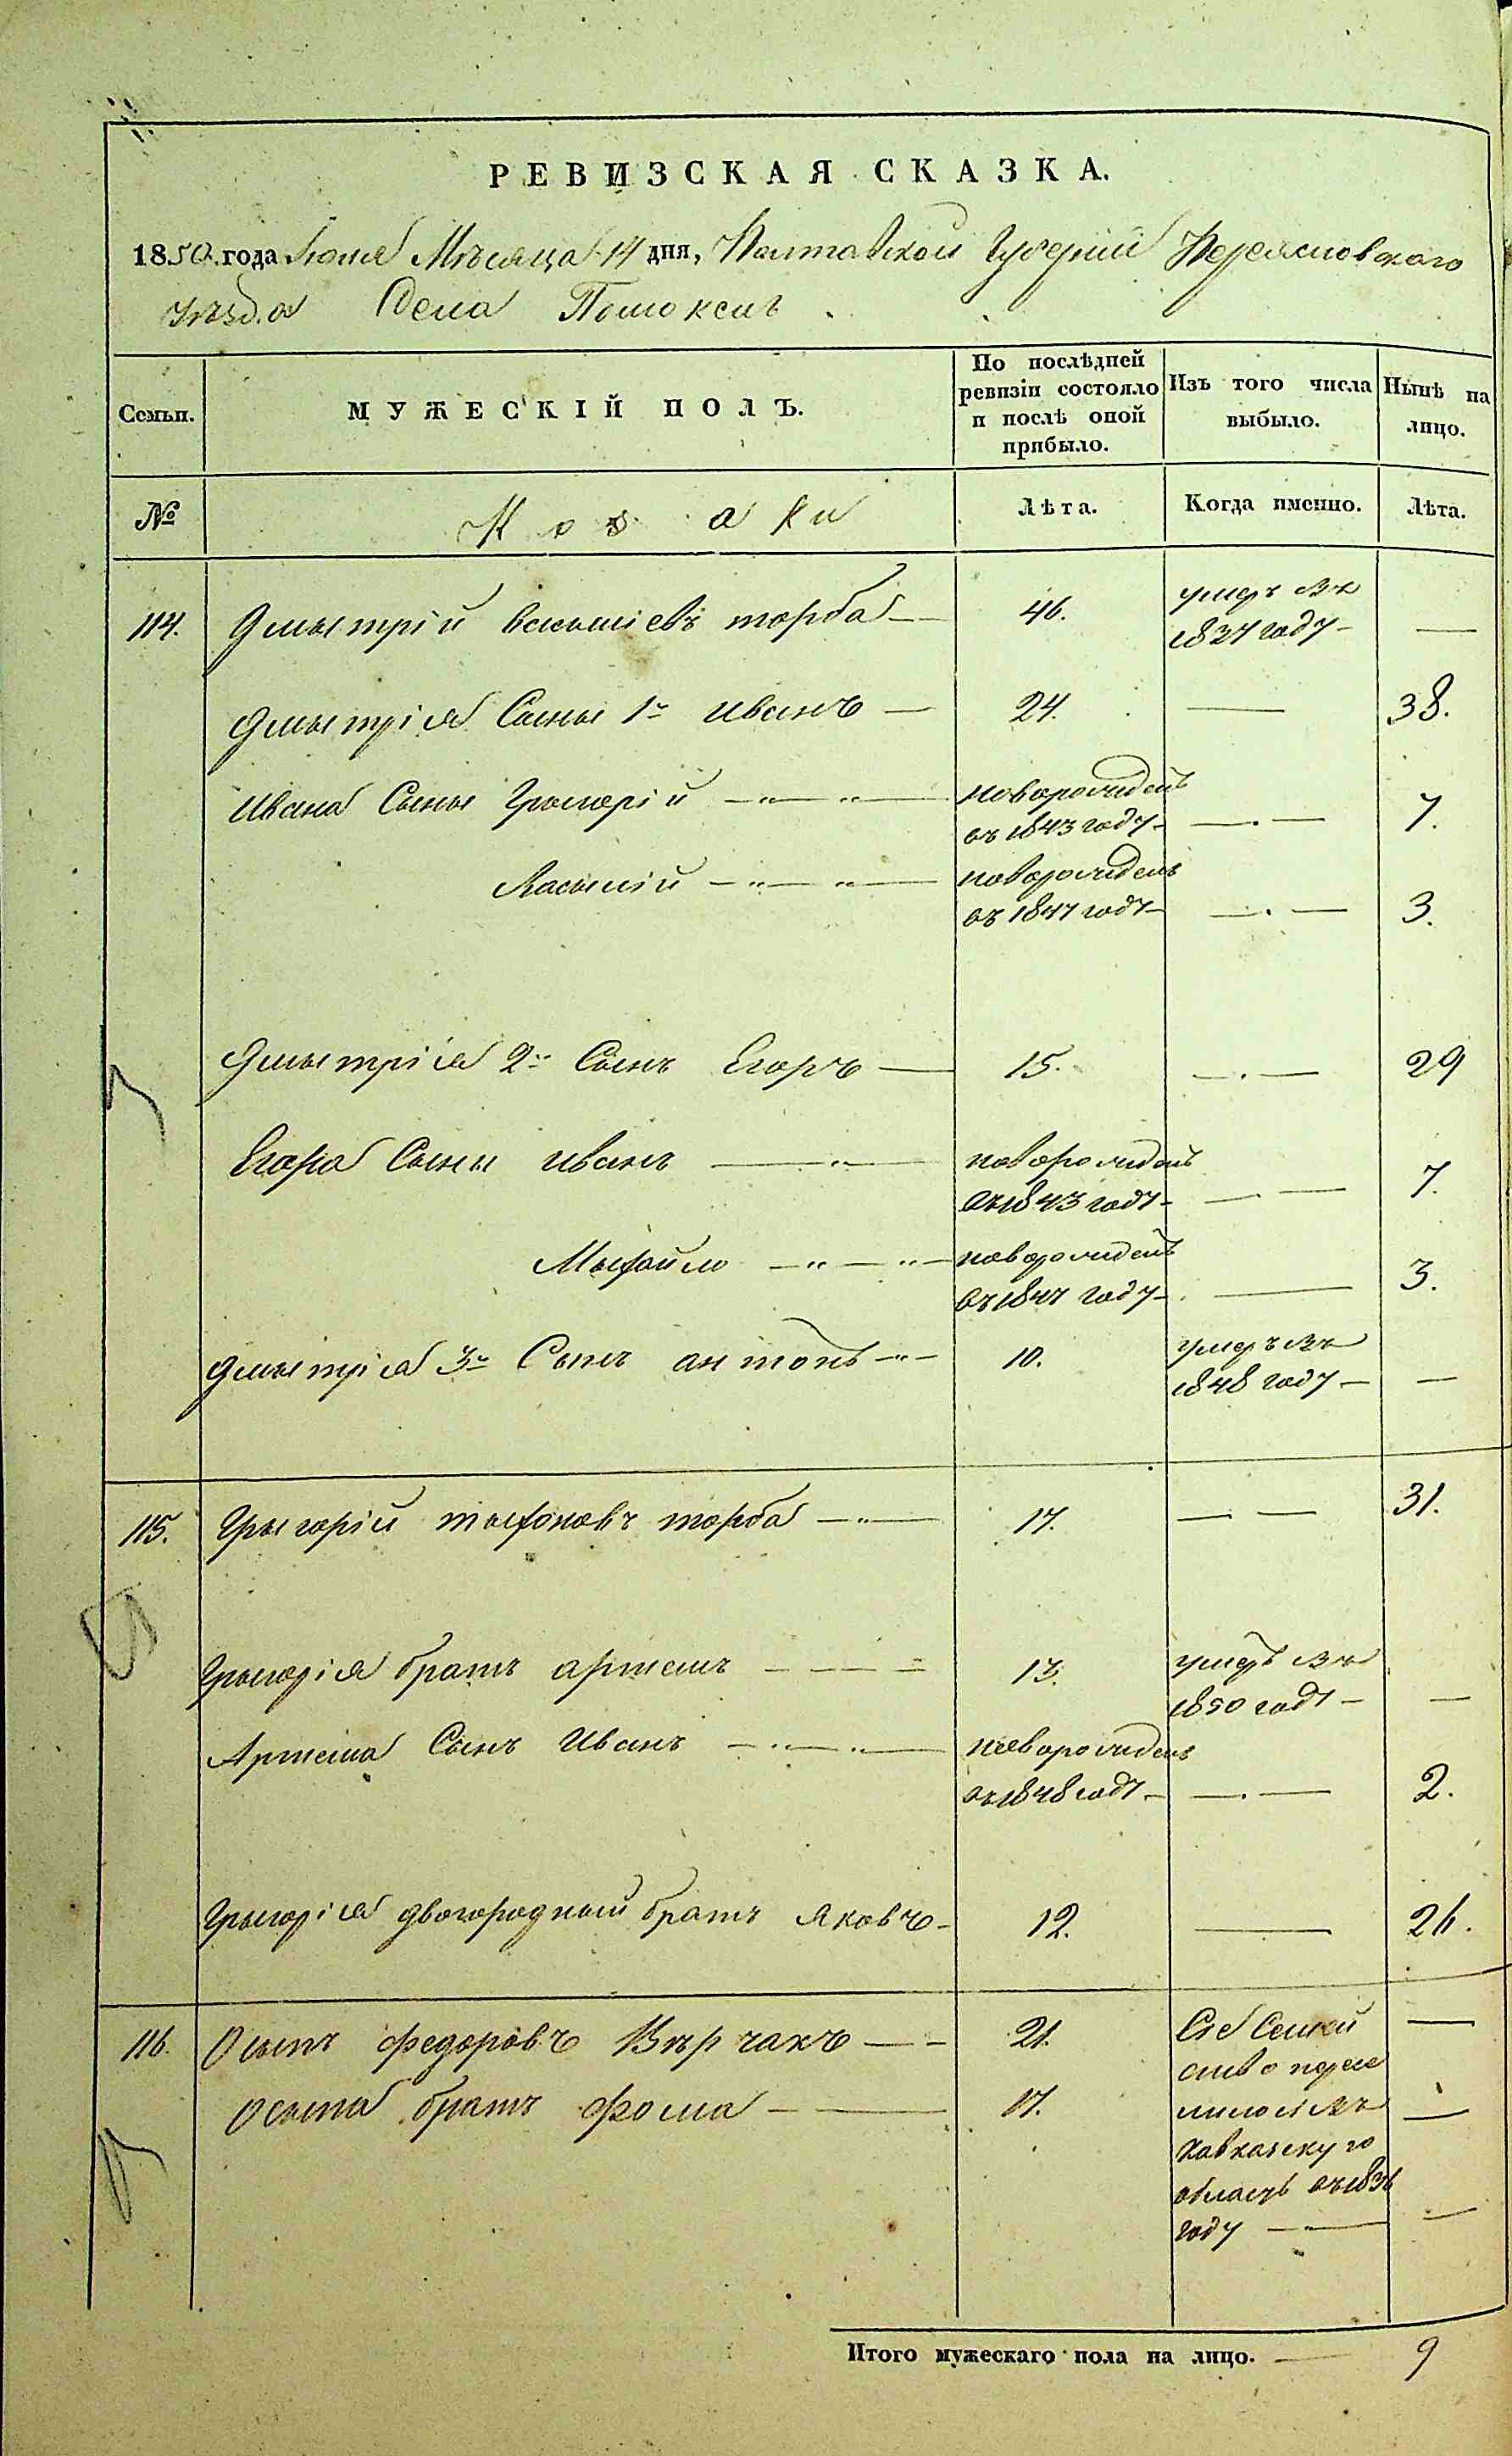 РЕВИЗСКАЯ СКАЗКА.
1850 года Июня Мѣсяца 14 дня, Полтавской Губерніи Переясловского
Уѣзда Села Помоклъ
Семьи.
МУЖЕСКІЙ ПОЛЪ.
По послѣдней ревизіи состояло и послѣ оной прибыло.
Изъ того числа выбыло.
Нынѣ на лицо.
№
Козаки
Лѣта.
Когда именно.
Лѣта.
114. Дмытрій васыліевъ торба 46. умеръ въ
1837 году —
Дмытрія Сыны 1й иванъ — 24. — 38.
Ивана Сыны Грыгорій новорожденъ
въ 1843 году — — 7.
Васылій новорожденъ
въ 1847 году — — 3.
Дмытрія 2й Сынъ Егоръ — 15. — 29
Егора Сыны иванъ новорожденъ
въ 1843 году — — 7.
Мыхайло новорожденъ
въ 1847 году — — 3.
дмытрія 3й Сынъ антонъ 10. умеръ въ
1848 году — —
115. Грыгорій тыхоновъ торба 17. — 31.
Грыгорія братъ артемъ 13. умеръ въ
1850 году — —
Артема Сынъ Иванъ новорожденъ
въ 1848 году — — 2.
Грыгорія двоюродный братъ яковъ — 12. — 26.
116. Осыпъ федоровъ Вѣрчакъ 21. Сіе Семей —
ство пересе
Осыпа братъ фома 17. лилось въ —
Кавказскую
область въ 1836
году —
Итого мужескаго пола на лицо. — 9